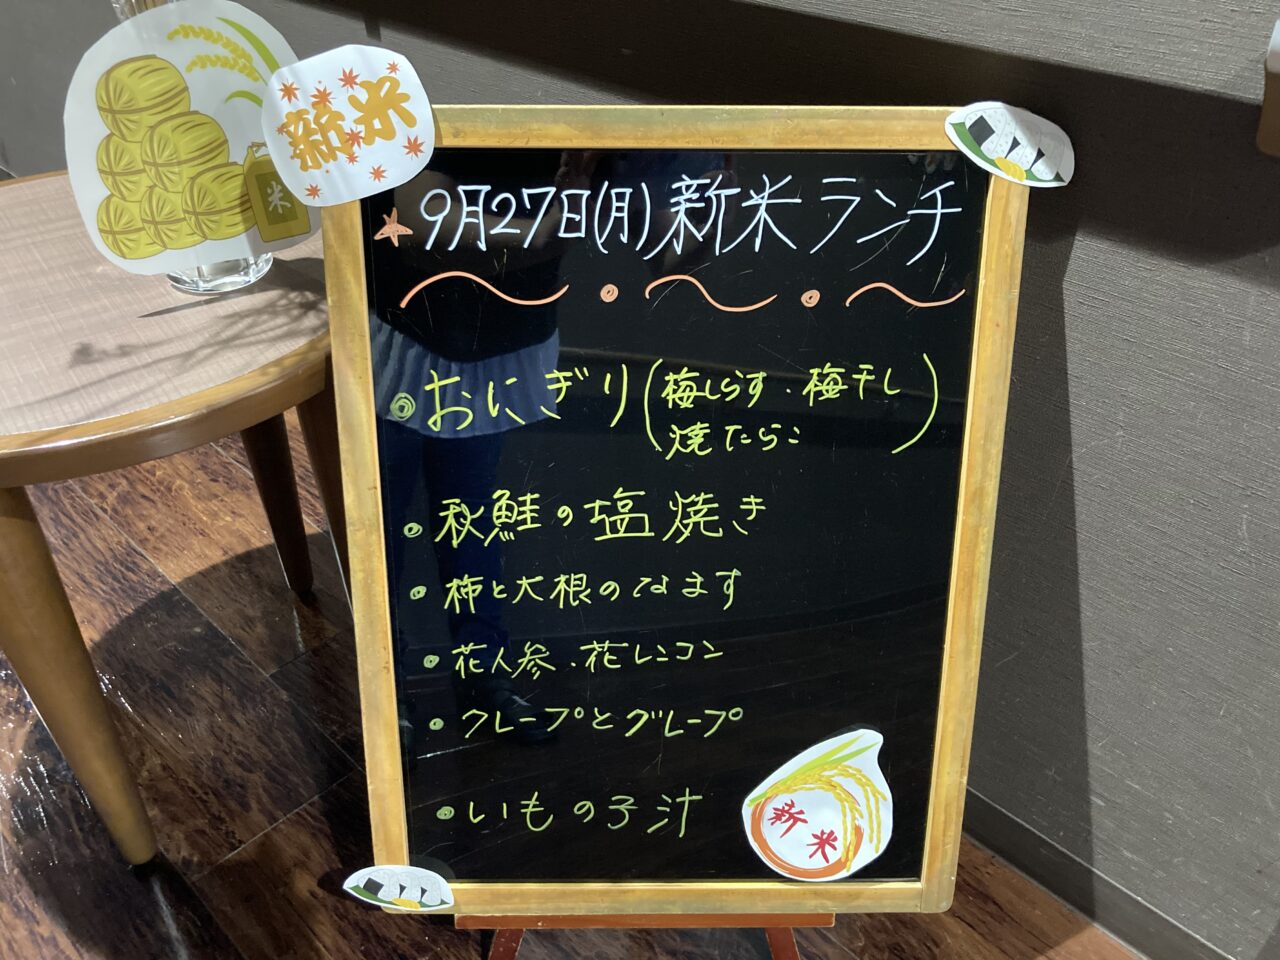 新米
米
9月27日(月)新米ランチ
おにぎり(梅しらす・梅干し
焼たらこ)
秋鮭の塩焼き
柿と大根のなます
花人参・花レンコン
クレープとグレープ
いもの子汁
新米